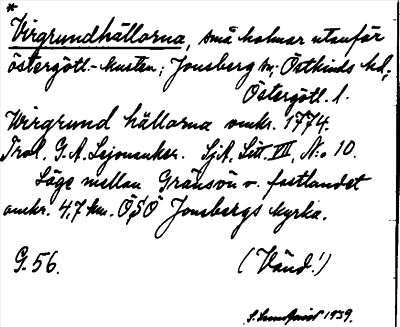 *
Virgrundhällorna, små holmar utanför
östergötl.-kusten; Jonsberg sn; Östkinds hd;
Östergötl. l.
Wirgrund hällorna omkr. 1774.
Trol. G. A. Lejonanker. SjA, Litt. VII, N:o 10.
Läge mellan Gränsön o. fastlandet
omkr. 4,7 km. ÖSÖ Jonsbergs kyrka.
G. 56. (Vänd!)
S. Lundqvist 1939.